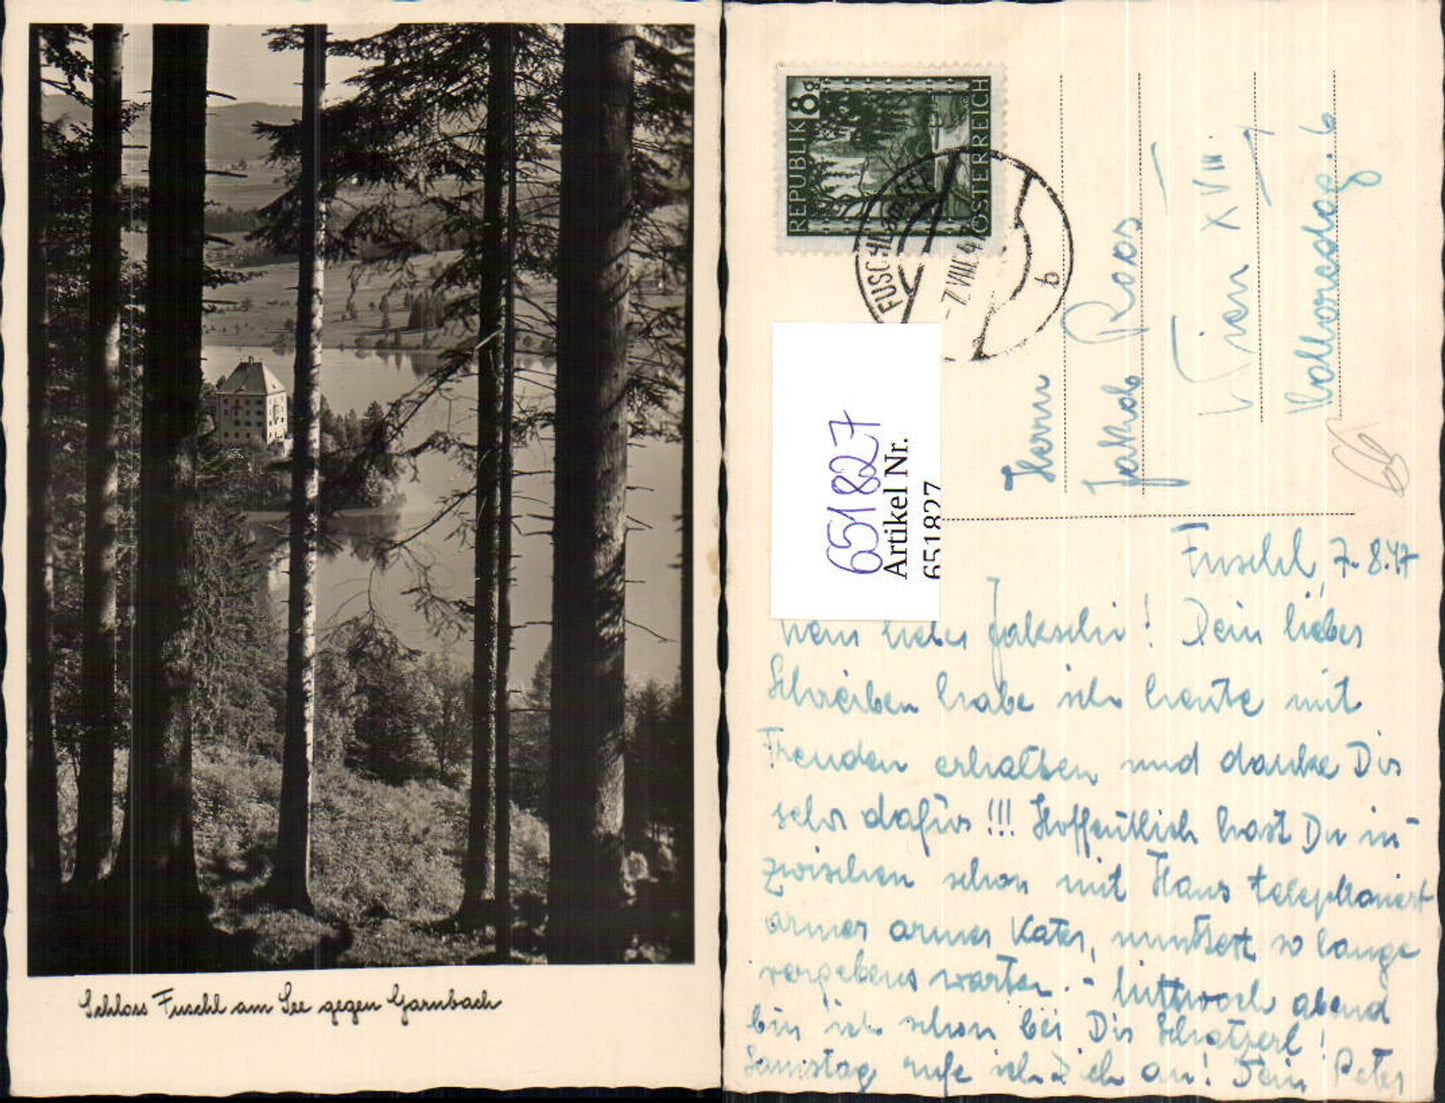 Schloss Fuschl am See gegen Garnbach
REPUBLIK 8g
ÖSTERREICH
-7.VIII.47
b
651827
Artikel Nr.
651827
Herrn
Jakob Roos
Wien XVIII
6
66
Fuschl, 7.8.47
Mein lieber Jakschi! Dein liebes
Schreiben habe ich heute mit
Freuden erhalten und danke Dir
sehr dafür!!! Hoffentlich hast Du in-
zwischen schon mit Hans telephoniert
armer armer Kater, musstest so lange
vergebens warten. - Mittwoch abend
bin ich schon bei Dir Schatzerl!
Samstag rufe ich Dich an! Dein Peter